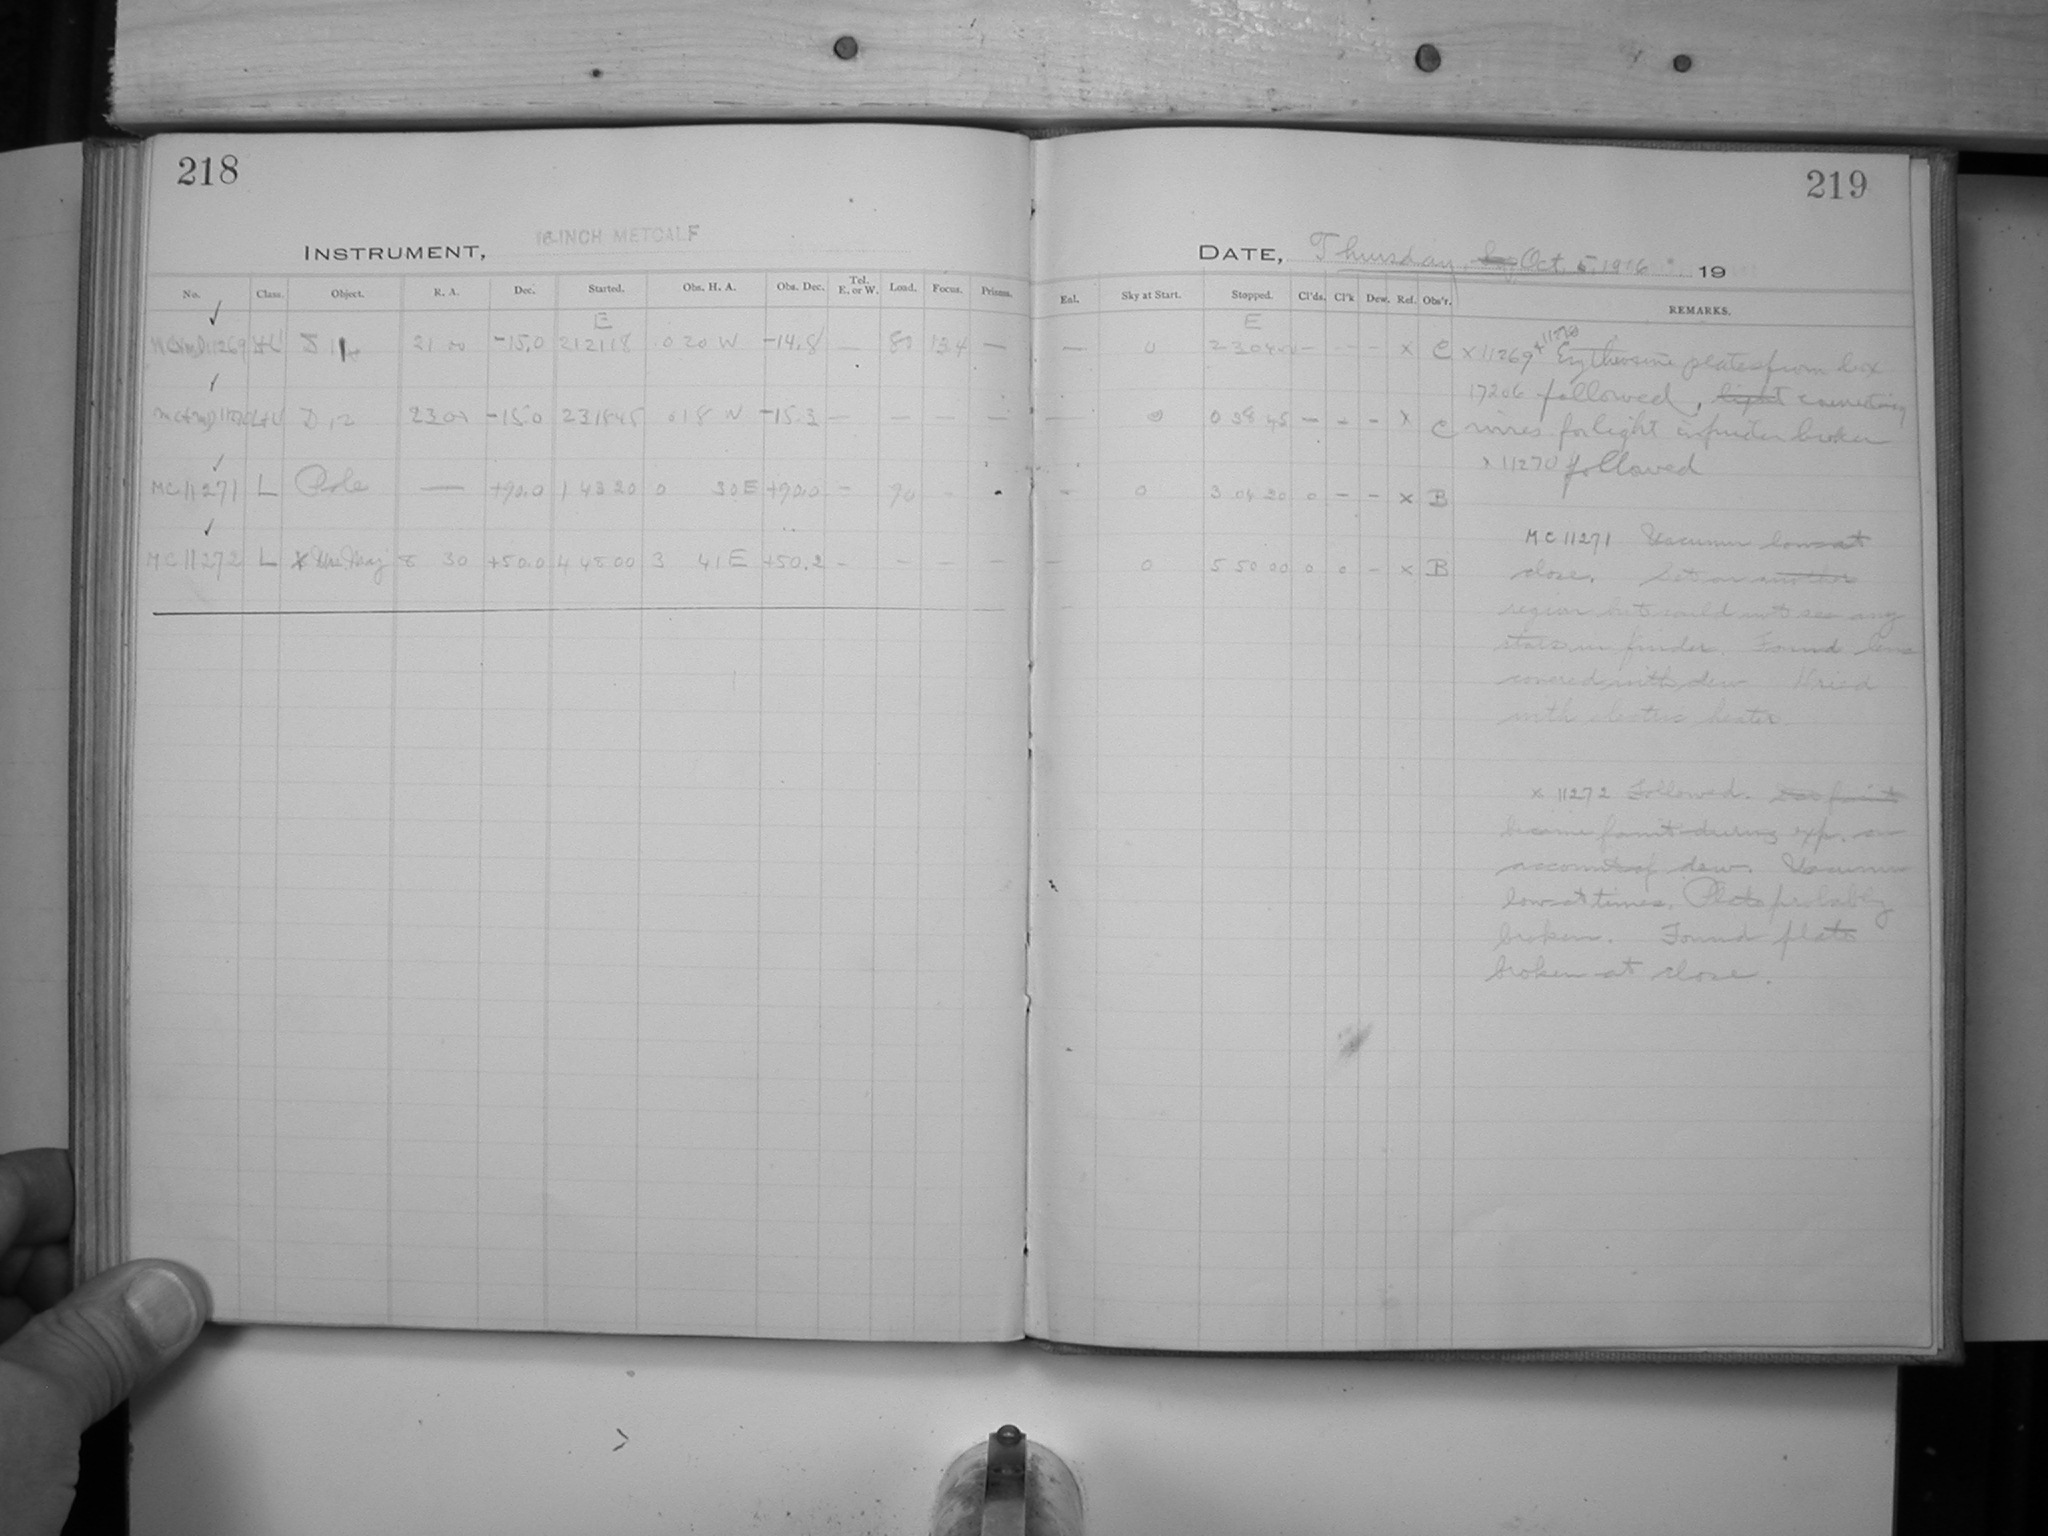 218
219
INSTRUMENT, 16-INCH METCALF
DATE, Thursday, Oct. 5, 1916 19
No. Class. Object. R. A. Dec. Started. Obs. H. A. Obs. Dec. Tel. E. or W. Load. Focus. Prisms. Eal. Sky at Start. Stopped. Cl'ds. Cl'k Dew. Ref. Obs'r. REMARKS.
E E
21 00 -15.0 212118 0 20 W -14.8 — 80 13.4 — — 0 — — — x C
D 12 23 00 -15.0 231845 0 18 W -15.3 — — — — — 0 0 38 45 — — — x C
MC11271 L Pole — +90.0 1 43 20 0 30E +90.0 — 90 - - - 0 3 04 20 0 — — x B
MC11272 L Urs Maj 8 30 +50.0 4 48 00 3 41E +50.2 - - - - - 0 5 50 00 0 0 - x B
x 11269 + 11270 Erytherosine plates from box
17206 followed, light connecting
wires for light in finder broken
x 11270 followed
MC 11271 Vacuum low at
close. Set on another
region but could not see any
stars in finder. Found lens
covered with dew. Dried
with electric heater.
x 11272 Followed.
became faint during exp. on
account of dew. Vacuum
low at times. Plate probably
broken. Found plate
broken at close.